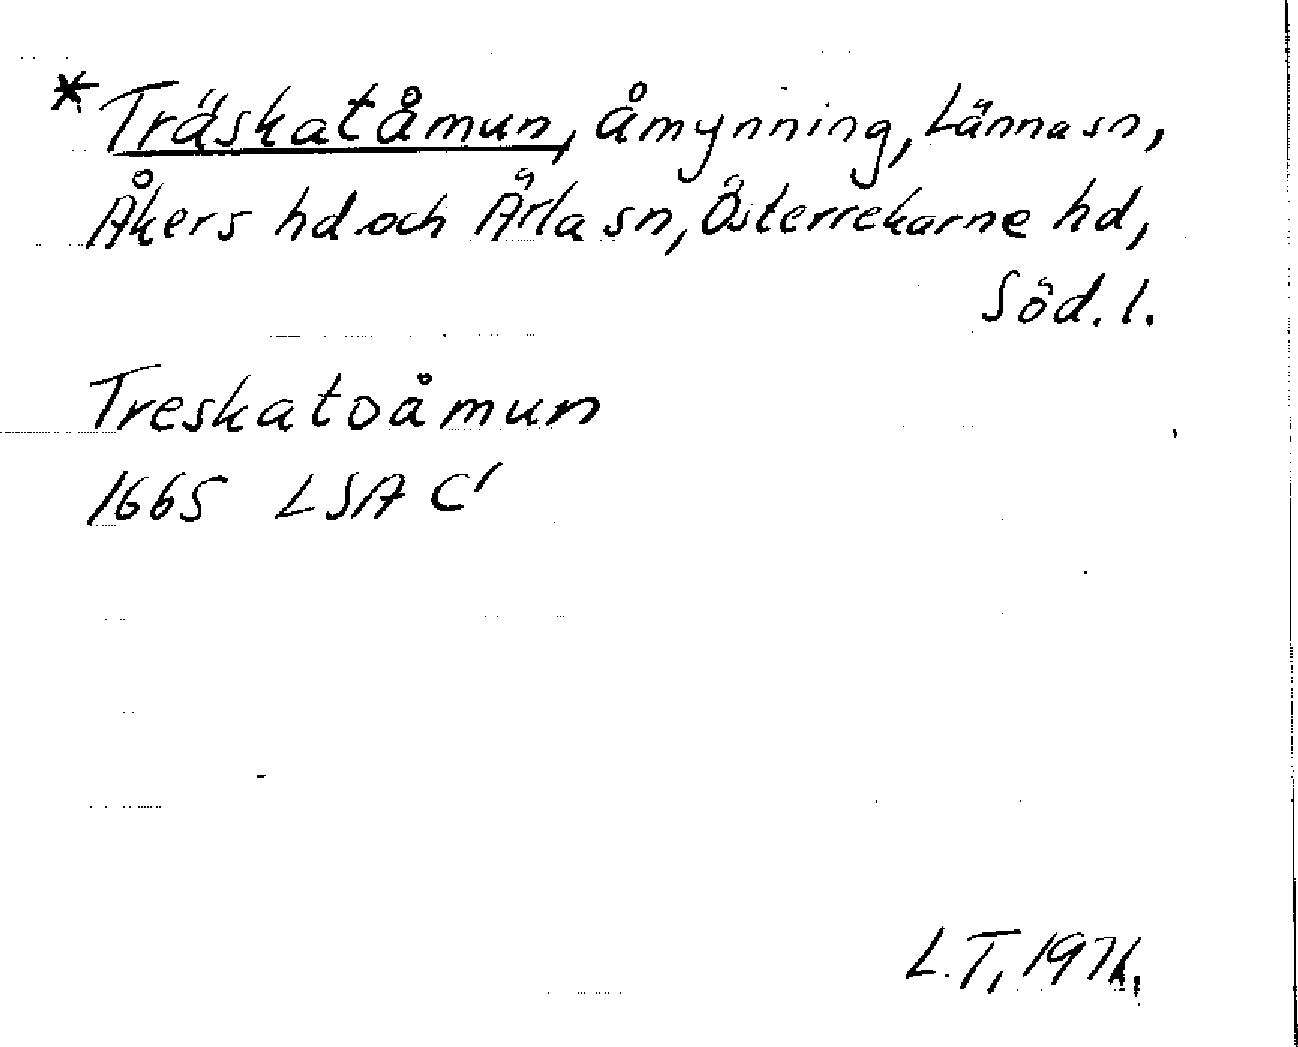 *Träskatåmun, åmynning, Länna sn,
Åkers hd och Ärla sn, Österrekarne hd,
Söd. l.
Treskatoåmun
1665 LSA C1
L.T,